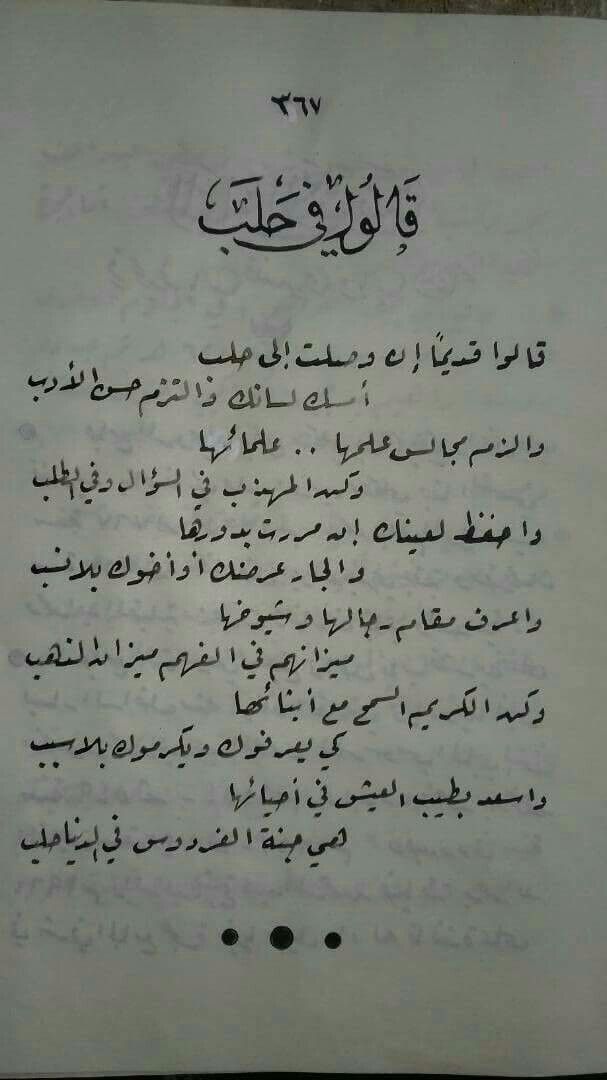 ٣٦٧
قَالُوا فِي حَلَبَ
قالوا قديمًا إن وصلت إلى حلب
أمسك لسانك والتزم حسن الأدب
والزم مجالس علمها .. علمائها
وكن المهذب في السؤال وفي الطلب
واحفظ لعينك إن مررت بدورها
والجار عرضك أو أخوك بلا نسب
واعرف مقام رجالها وشيوخها
ميزانهم في الفهم ميزان الذهب
وكن الكريم السمح مع أبنائها
كي يعرفوك ويكرموك بلا سبب
واسعد بطيب العيش في أحيائها
هي جنة الفردوس في الدنيا حلب